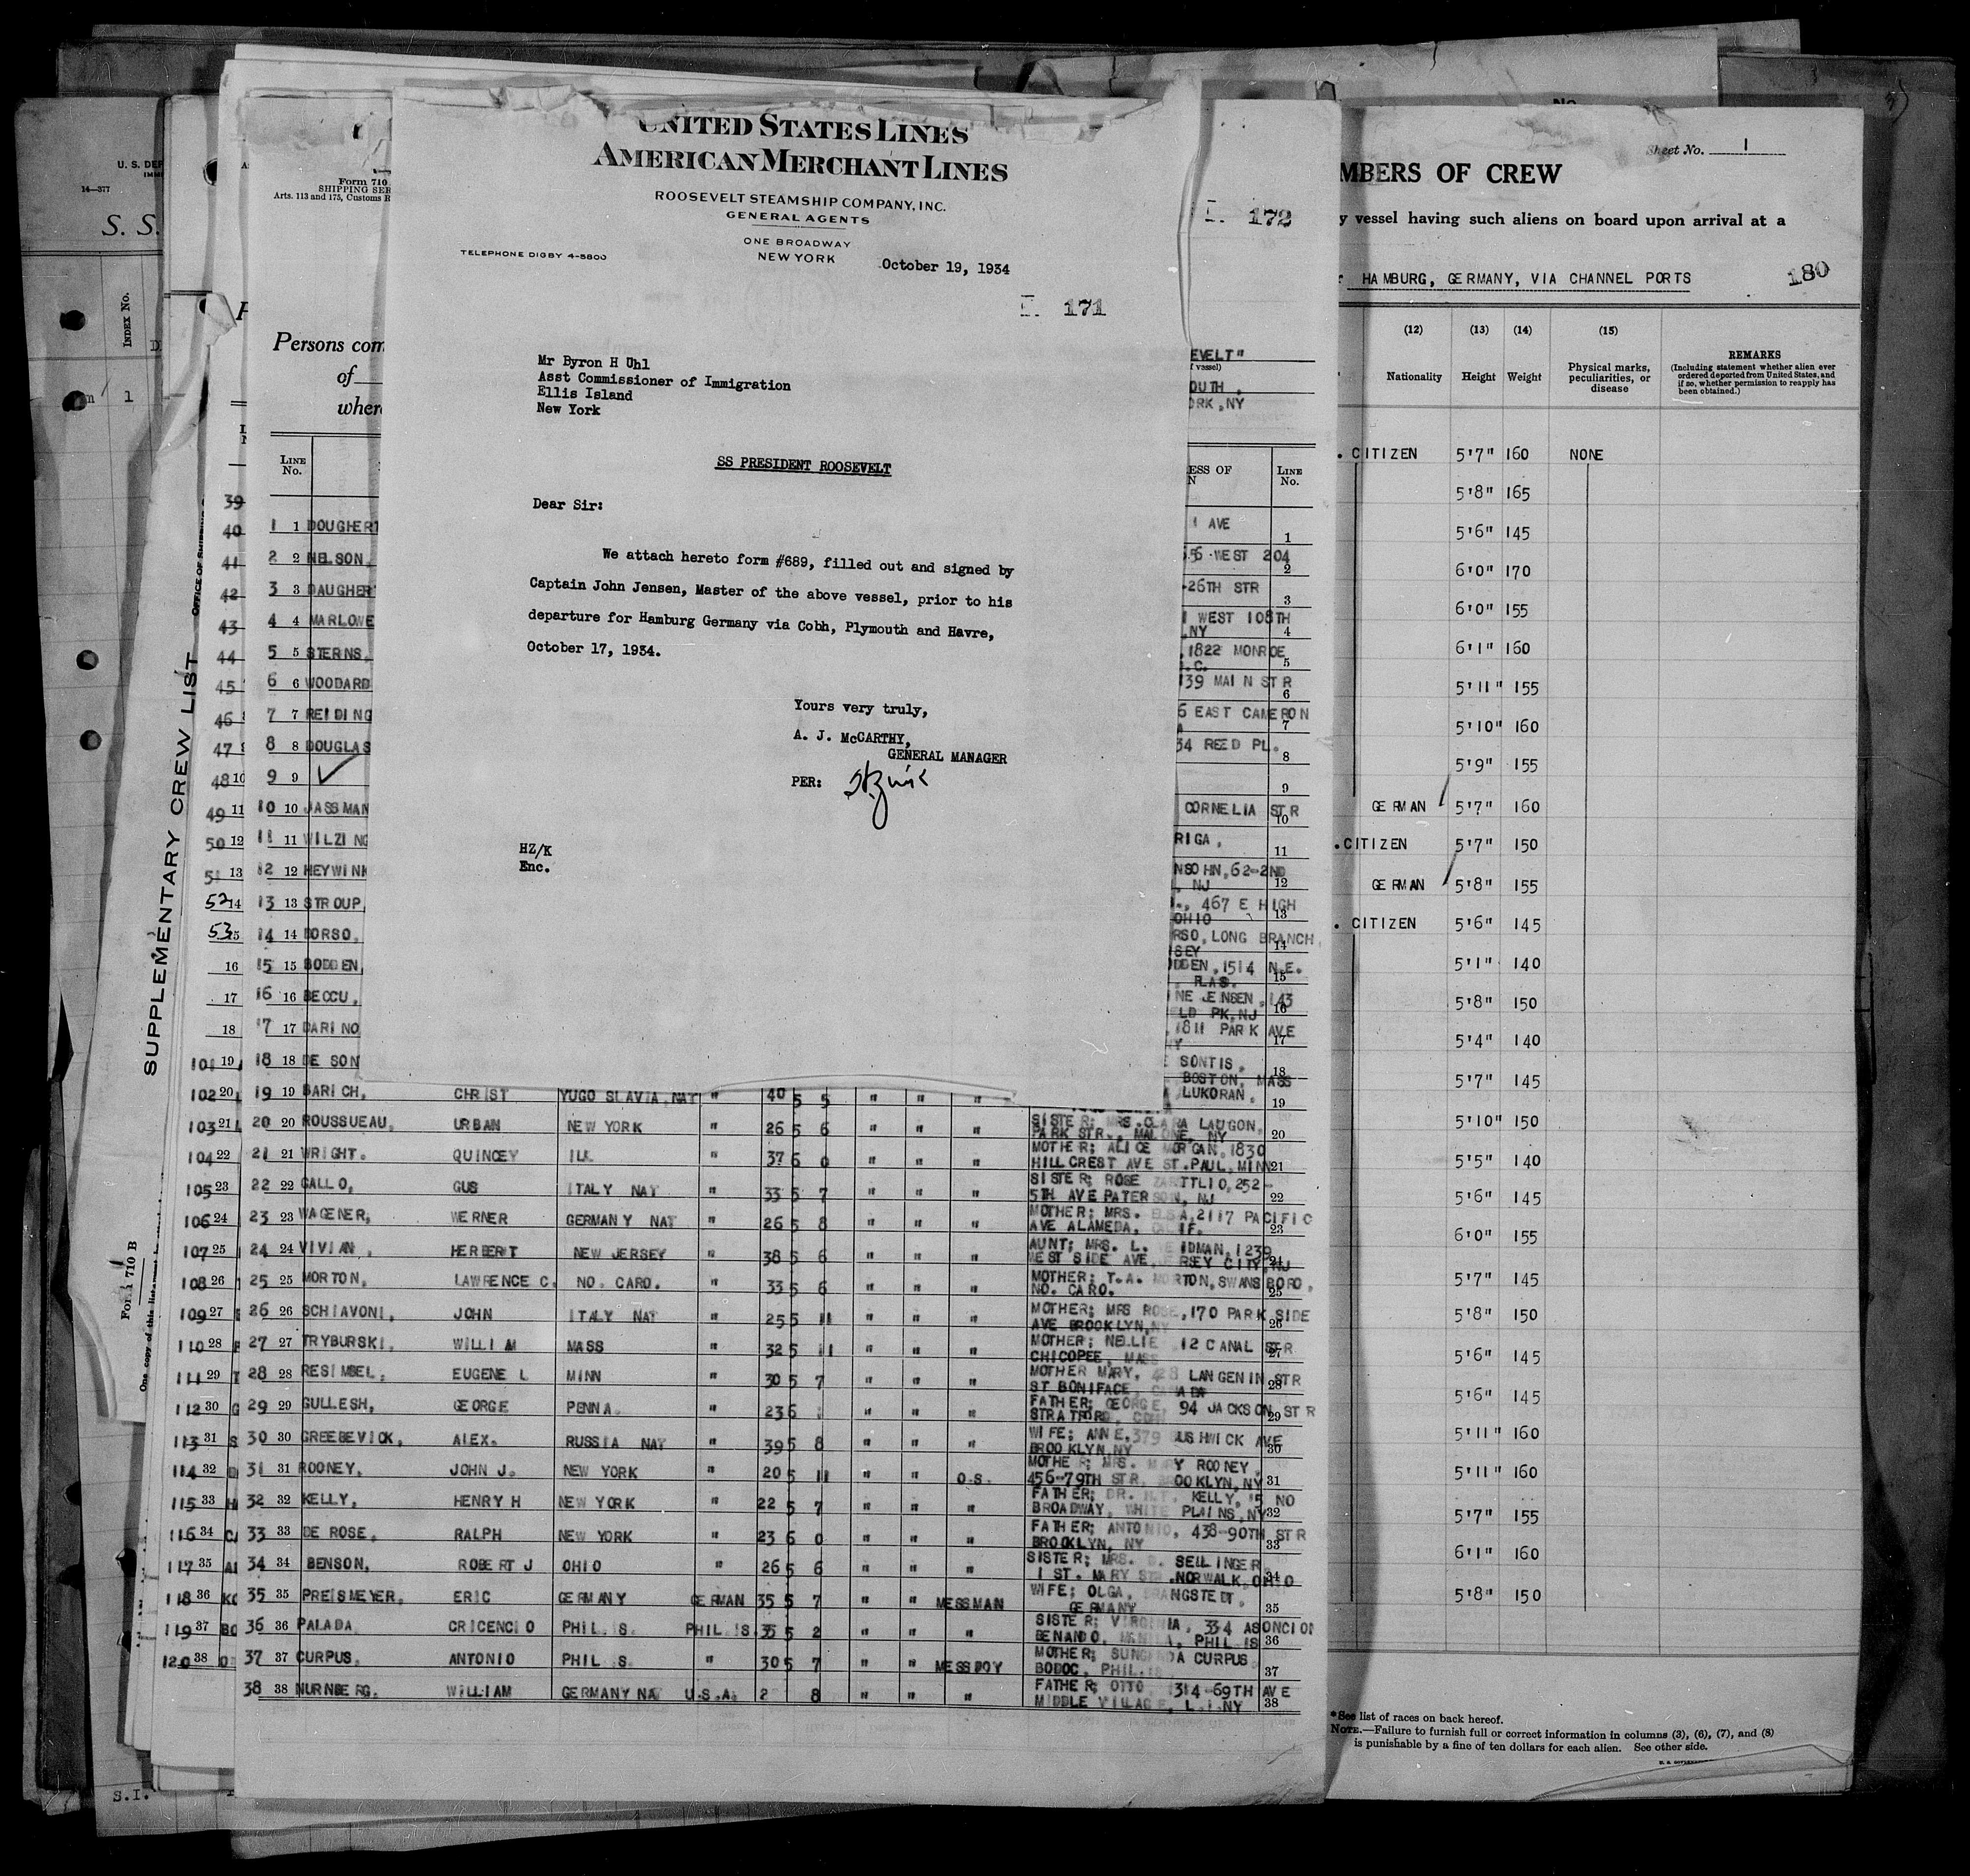 UNITED STATES LINES
AMERICAN MERCHANT LINES
ROOSEVELT STEAMSHIP COMPANY, INC.
GENERAL AGENTS
ONE BROADWAY
NEW YORK
TELEPHONE DIGBY 4-5800
October 19, 1934
171
Mr Byron H Uhl
Asst Commissioner of Immigration
Ellis Island
New York
SS PRESIDENT ROOSEVELT
Dear Sir:
We attach hereto form #689, filled out and signed by
Captain John Jensen, Master of the above vessel, prior to his
departure for Hamburg Germany via Cobh, Plymouth and Havre,
October 17, 1934.
Yours very truly,
A. J. McCARTHY,
GENERAL MANAGER
PER:
HZ/K
Enc.
U. S. DE
14—377
S. S.
INDEX No.
1
SUPPLEMENTARY CREW LIST
Form 710 B
One copy of this list must be
S.I.
Form 710
SHIPPING SER
Arts. 113 and 175, Customs R
Persons com
of
wher
LINE
No.
39
40
41
42
43
44
45
46
47
48 10
49 11
50 12
51 13
52 14
53 15
16
17
18
101 19
102 20
103 21
104 22
105 23
106 24
107 25
108 26
109 27
110 28
111 29
112 30
113 31
114 32
115 33
116 34
117 35
118 36
119 37
120 38
172
EVELT"
f vessel)
OUTH,
ORK, NY
ESS OF
N
LINE
No.
1 1 DOUGHERT
1 AVE 1
2 2 NELSON,
56 WEST 204 2
3 3 DAUGHER
-26TH STR 3
4 4 MARLOWE
WEST 108TH
NY 4
5 5 STERNS,
1822 MONROE
.C. 5
6 6 WOODARD
139 MAIN STR 6
7 7 REIDING
6 EAST CAMERON 7
8 8 DOUGLAS
34 REED PL. 8
9 9 ✓
9
10 10 JASSMAN
CORNELIA STR 10
11 11 WILZING
RIGA, 11
12 12 HEYWINK
NSOHN, 62-2ND
, NJ 12
13 13 STROUP,
., 467 E HIGH
OHIO 13
14 14 DORSO,
RSO, LONG BRANCH,
SEY 14
15 15 BODDEN,
DDEN, 1514 N.E. 15
16 16 BECCU,
NE JENSEN, 143
LD PK, NJ 16
17 17 DARINO
, 1811 PARK AVE
Y 17
18 18 DE SON
SONTIS,
BOSTON, MASS 18
19 19 BARICH, CHRIST YUGO SLAVIA NAT " 40 5 5 " " "
LUKORAN. 19
20 20 ROUSSUEAU, URBAN NEW YORK " 26 5 6 " " " SISTER; MRS. CLARA LAUGON,
PARK STR., MALONE, NY 20
21 21 WRIGHT. QUINCEY ILL " 37 6 0 " " " MOTHER; ALICE MORGAN, 1830
HILLCREST AVE ST. PAUL, MINN 21
22 22 GALLO, GUS ITALY NAT " 33 5 7 " " " SISTER; ROSE 252-
5TH AVE PATERSON, NJ 22
23 23 WAGENER, WERNER GERMANY NAT " 26 5 8 " " " MOTHER; MRS. ELSA, 2117 PACIFIC
AVE ALAMEDA, CALIF. 23
24 24 VIVIAN, HERBERT NEW JERSEY " 38 5 6 " " " AUNT; MRS. L. 1239
WEST SIDE AVE, JERSEY CITY, NJ 24
25 25 MORTON, LAWRENCE C. NO. CARO. " 33 5 6 " " " MOTHER; T.A. MORTON, SWANSBORO,
NO. CARO. 25
26 26 SCHIAVONI, JOHN ITALY NAT " 25 5 11 " " " MOTHER; MRS ROSE, 170 PARK SIDE
AVE BROOKLYN, NY 26
27 27 TRYBURSKI, WILLIAM MASS " 32 5 11 " " " MOTHER; NELLIE 12 CANAL STR
CHICOPEE, MASS 27
28 28 RESIMBEL, EUGENE L MINN " 30 5 7 " " " MOTHER MARY, LANGENIN STR
ST BONIFACE, CANADA 28
29 29 GULLESH, GEORGE PENNA. " 23 6 " " " FATHER; GEORGE, 94 JACKSON STR
STRATFORD, CONN 29
30 30 GREEBEVICK, ALEX. RUSSIA NAT " 39 5 8 " " " WIFE; ANNE, 379 BUSHWICK AVE
BROOKLYN, NY 30
31 31 ROONEY, JOHN J. NEW YORK " 20 5 11 " " O.S. MOTHER; MRS. MARY ROONEY,
456-79TH STR, BROOKLYN, NY 31
32 32 KELLY, HENRY H NEW YORK " 22 5 7 " " " FATHER; DR. KELLY, 15 NO
BROADWAY, WHITE PLAINS, NY 32
33 33 DE ROSE, RALPH NEW YORK " 23 6 0 " " " FATHER; ANTONIO, 438-90TH STR
BROOKLYN, NY 33
34 34 BENSON, ROBERT J OHIO " 26 5 6 " " " SISTER; MRS. SEILINGER
1 ST. MARY STR. NORWALK, OHIO 34
35 35 PREISMEYER, ERIC GERMANY GERMAN 35 5 7 " " MESSMAN WIFE; OLGA,
GERMANY 35
36 36 PALADA CRICENCIO PHIL. IS. PHIL. IS. 35 5 2 " " " SISTER; VIRGINIA, 334 ASONCION
BENANDO, MANILA, PHIL. IS 36
37 37 CURPUS, ANTONIO PHIL. IS. " 30 5 7 " " MESSBOY MOTHER; CURPUS
BODOC, PHIL. IS 37
38 38 NURNBERG, WILLIAM GERMANY NAT U.S.A. 2 8 " " " FATHER; OTTO, 314-69TH AVE
MIDDLE VILLAGE, L.I. NY 38
Sheet No. 1
MBERS OF CREW
y vessel having such aliens on board upon arrival at a
HAMBURG, GERMANY, VIA CHANNEL PORTS
180
(12) (13) (14) (15)
Nationality Height Weight Physical marks, peculiarities, or disease
REMARKS
(Including statement whether alien ever
ordered deported from United States, and
if so, whether permission to reapply has
been obtained.)
. CITIZEN 5'7" 160 NONE
5'8" 165
5'6" 145
6'0" 170
6'0" 155
6'1" 160
5'11" 155
5'10" 160
5'9" 155
GERMAN 5'7" 160
.CITIZEN 5'7" 150
GERMAN 5'8" 155
. CITIZEN 5'6" 145
5'1" 140
5'8" 150
5'4" 140
5'7" 145
5'10" 150
5'5" 140
5'6" 145
6'0" 155
5'7" 145
5'8" 150
5'6" 145
5'6" 145
5'11" 160
5'11" 160
5'7" 155
6'1" 160
5'8" 150
*See list of races on back hereof.
NOTE.—Failure to furnish full or correct information in columns (3), (6), (7), and (8)
is punishable by a fine of ten dollars for each alien. See other side.